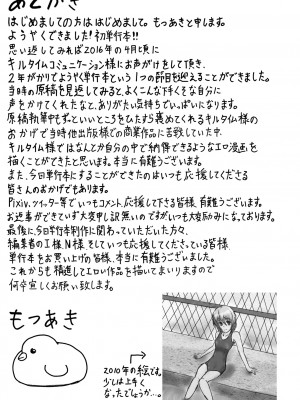 あとがき
はじめましての方ははじめまして。もつあきと申します。
ようやくできました!初単行本!!
思い返してみれば2016年の4月頃に
キルタイムコミュニケーション様にお声がけをして頂き、
2年がかりでようやく単行本という1つの節目を迎えることができました。
当時の原稿を見返してみると、よくこんな拙くきな自分に
声をかけてくれたなと、ありがたい気持ちでいっぱいになります。
原稿執筆中もずっといいところをひたすら褒めてくれるキルタイム様の
おかげで当時他出版様での商業作品に苦戦していた中、
キルタイム様でほんとうに自分の中で納得できるようなエロ漫画を
描くことができたと思います。本当に有難うございます。
また、今回単行本にすることができたのはいつも応援してくださる
皆さんのおかげでもあります。
Pixiv、ツイッター等でいつもコメント、応援して下さる皆様、有難うございます。
お返事ができていず大変申し訳無いですがいつも大変励みになっております。
最後に、今回単行本制作に関わっていただいた方々、
編集者のI様、N様、そしていつも応援してくださっている皆様
単行本をお買い上げの皆様、本当に有難うございました。
これからも精進してエロい作品を描いてまいりますので
何卒宜しくお願い致します。
もつあき
2010年の絵です。
少しは上手く
なったでしょうか…。